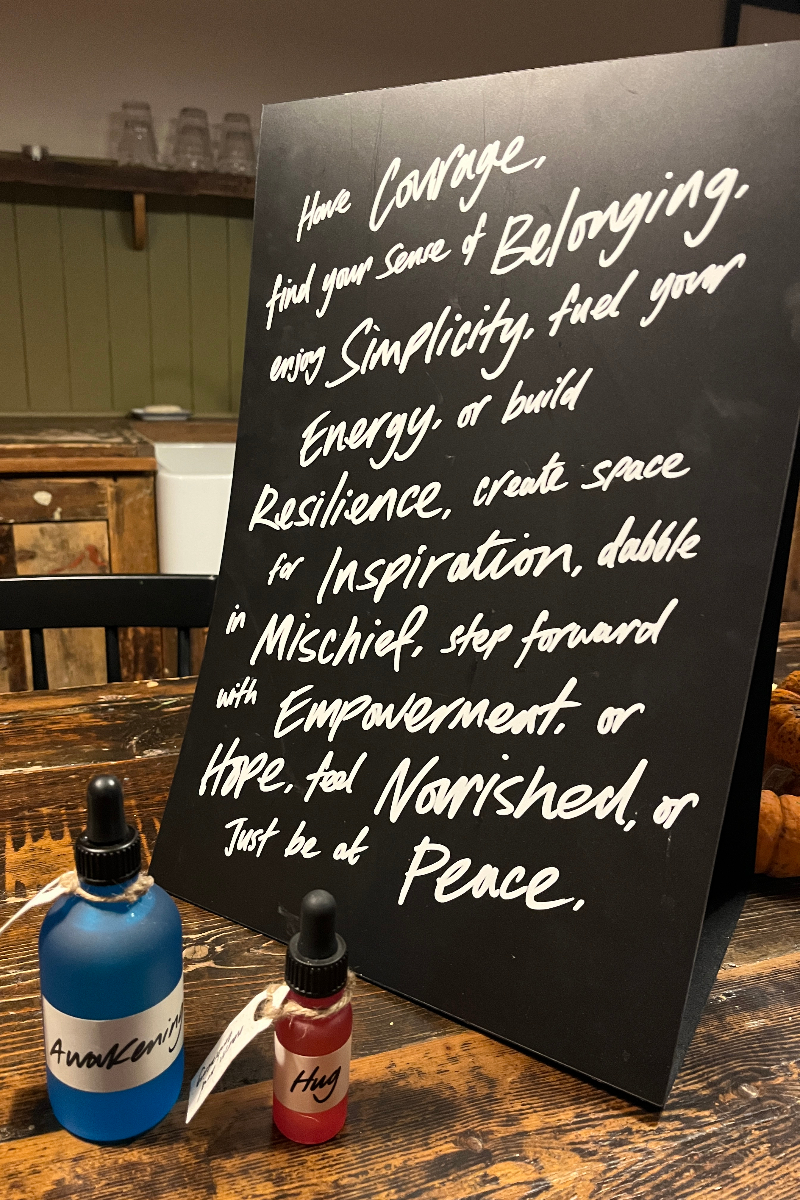 Have Courage,
find your sense of Belonging,
enjoy Simplicity, fuel your
Energy, or build
Resilience, create space
for Inspiration, dabble
in Mischief, step forward
with Empowerment, or
Hope, feel Nourished, or
Just be at Peace,
Awakening
Hug